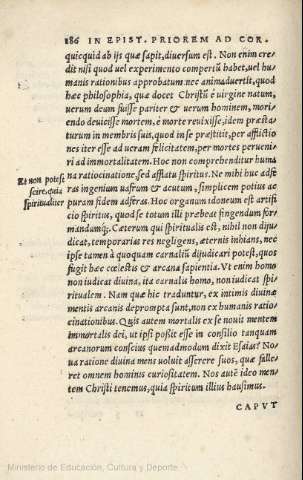 186 IN EPIST. PRIOREM AD COR.
quicquid ab ijs quæ sapit, diuersum est. Non enim cre
dit nisi quod uel experimento compertũ habet, uel hu
manis rationibus approbatum: nec animaduertit, quod
hæc philosophia, quæ docet Christũ è uirgine natum,
uerum deum fuisse pariter & uerum hominem, mori-
endo deuicisse mortem, è morte reuixisse, idem præsta-
turum in membris suis, quod in se præstitit, per afflictio
nes iter esse ad ueram felicitatem, per mortes perueni
ri ad immortalitatem. Hoc non comprehenditur huma
na ratiocinatione, sed afflatu spiritus. Ne mihi huc adfe
ras ingenium uafrum & acutum, simplicem potius ac
puram fidem adferas. Hoc organum idoneum est artifi
cio spiritus, quod se totum illi præbeat fingendum for-
mandumq́;. Cæterum qui spiritualis est, nihil non diiu-
dicat, temporarias res negligens, æternis inhians, nec
ipse tamen à quoquam carnaliũ dijudicari potest, quos
fugit hæc cœlestis & arcana sapientia. Vt enim homo
non iudicat diuina, ita carnalis homo, non iudicat spi-
ritualem. Nam quæ hic traduntur, ex intimis diuinæ
mentis arcanis deprompta sunt, non ex humanis ratio-
cinationibus. Quis autem mortalis ex se nouit mentem
immortalis dei, ut ipsi possit esse in consilio tanquam
arcanorum conscius quemadmodum dixit Esaias? No-
ua ratione diuina mens uoluit asserere suos, quæ falle-
ret omnem hominis curiositatem. Nos autẽ ideo men-
tem Christi tenemus, quia spiritum illius hausimus.
CAPVT
Et non potest
scire, quia
spiritualiter
Ministerio de Educación, Cultura y Deporte